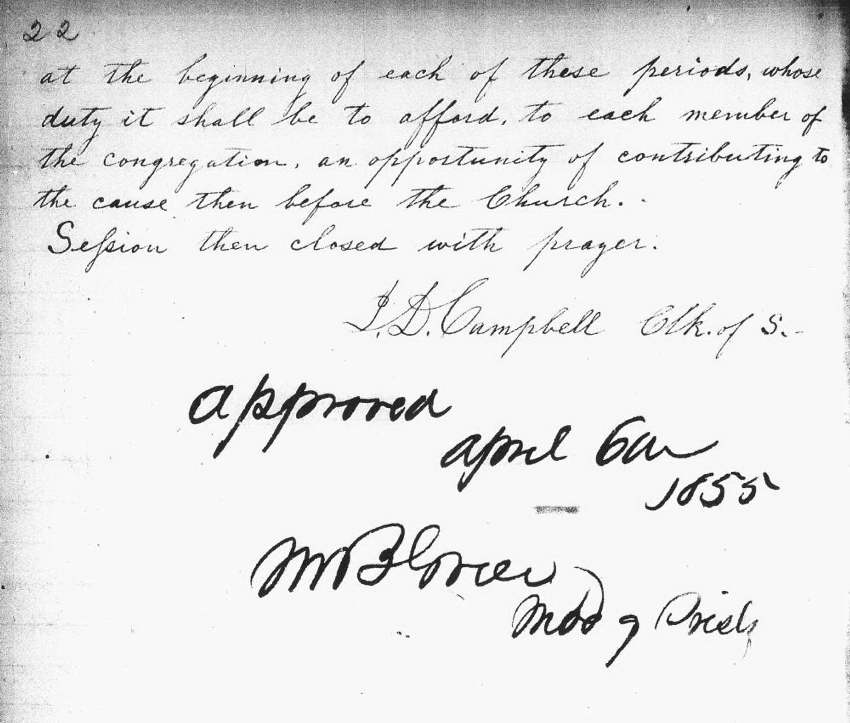 22
at the beginning of each of these periods, whose
duty it shall be to afford, to each member of
the congregation, an opportunity of contributing to
the cause then before the Church.
Session then closed with prayer.
J. D. Campbell Clk. of S.
approved
april 6th
1855
Mod of Presb